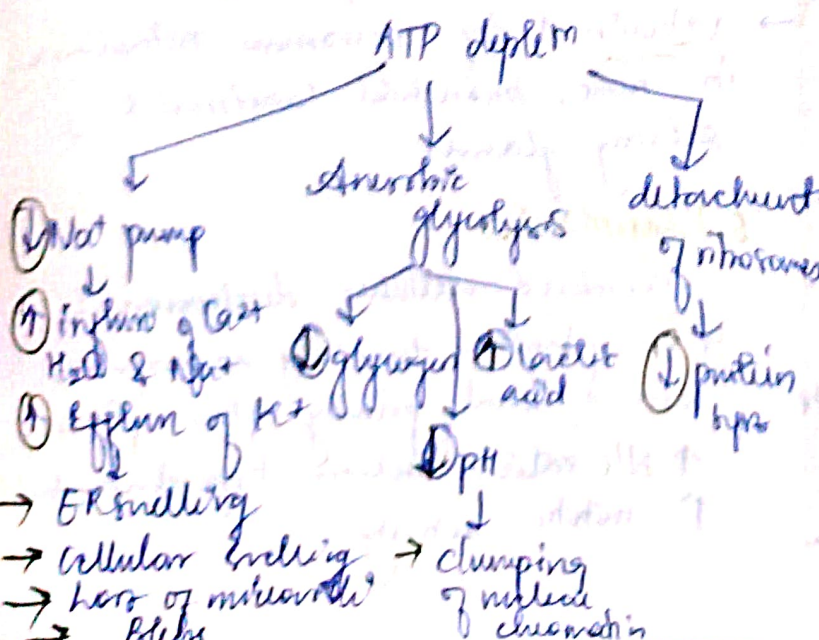 ATP deplen
↓ Na+ pump
↑ influx of Ca2+
H2O & Na+
↑ Efflux of K+
→ ER swelling
→ Cellular swelling
→ Loss of microvilli
→ Blebs
Anerobic
glycolysis
↓ glycogen
↑ lactic
acid
↓ pH
→ clumping
of nuclear
chromatin
detachment
of ribosomes
↓ protein
syns